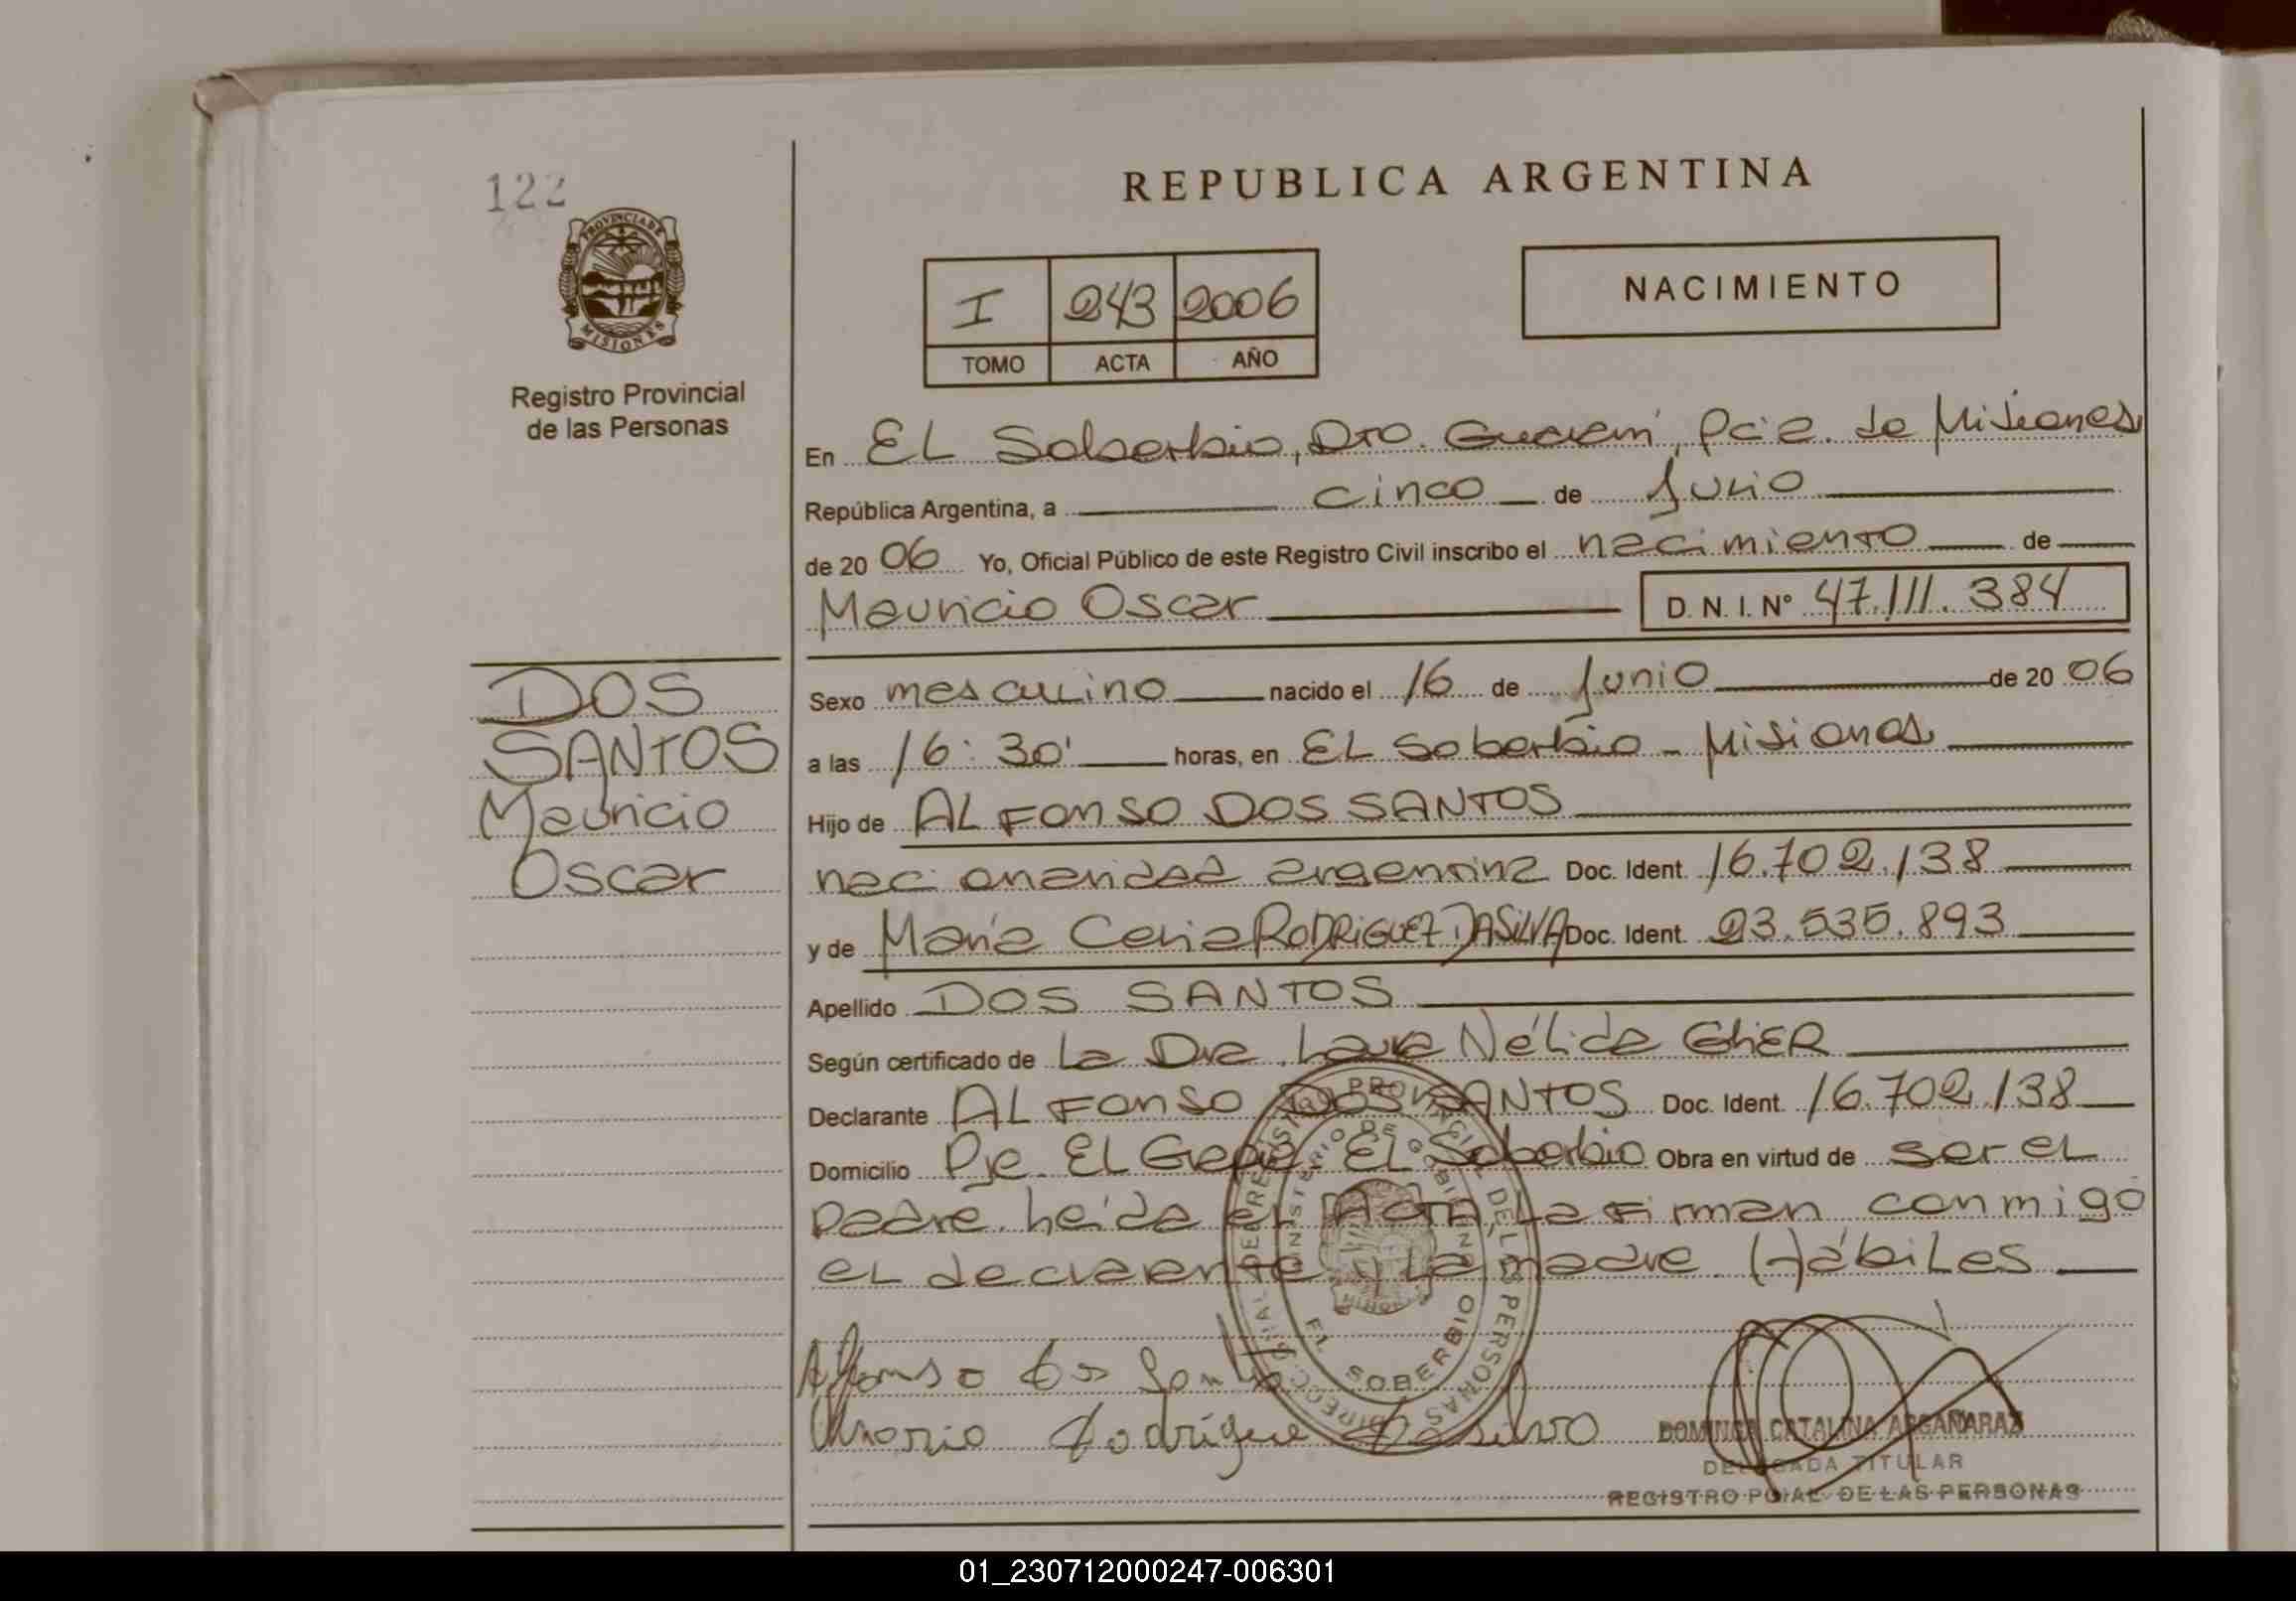 122
PROVINCIA DE
MISIONES
Registro Provincial
de las Personas
REPUBLICA ARGENTINA
I 243 2006
TOMO ACTA AÑO
NACIMIENTO
En EL Soberbio, Dto. Guaraní, Pcia. de Misiones
República Argentina, a cinco de Julio
de 20 06 Yo, Oficial Público de este Registro Civil inscribo el nacimiento de
Mauricio Oscar D. N. I. N° 47.111.384
DOS
SANTOS
Mauricio
Oscar
Sexo masculino nacido el 16 de Junio de 20 06
a las 16:30' horas, en EL Soberbio - Misiones
Hijo de ALFONSO DOS SANTOS
nacionalidad argentina Doc. Ident. 16.702.138
y de María Celia RODRIGUEZ DASILVA Doc. Ident. 23.535.893
Apellido DOS SANTOS
Según certificado de La Dra. Laura Nélida GhER
Declarante ALFONSO DOS SANTOS Doc. Ident. 16.702.138
Domicilio Pje. EL . EL Soberbio Obra en virtud de ser eL
padre. Leída eL ACTA, La Firman conmigo
eL declarante y La madre. Hábiles
DIRECC. GRAL. DE REGISTRO PROVINCIAL DE LAS PERSONAS
MINISTERIO DE GOBIERNO
EL SOBERBIO
Alfonso dos Santos
Maria Rodrigue dasilva
DOMINGA CATALINA ARGAÑARAZ
DELEGADA TITULAR
REGISTRO PCIAL. DE LAS PERSONAS
01_230712000247-006301